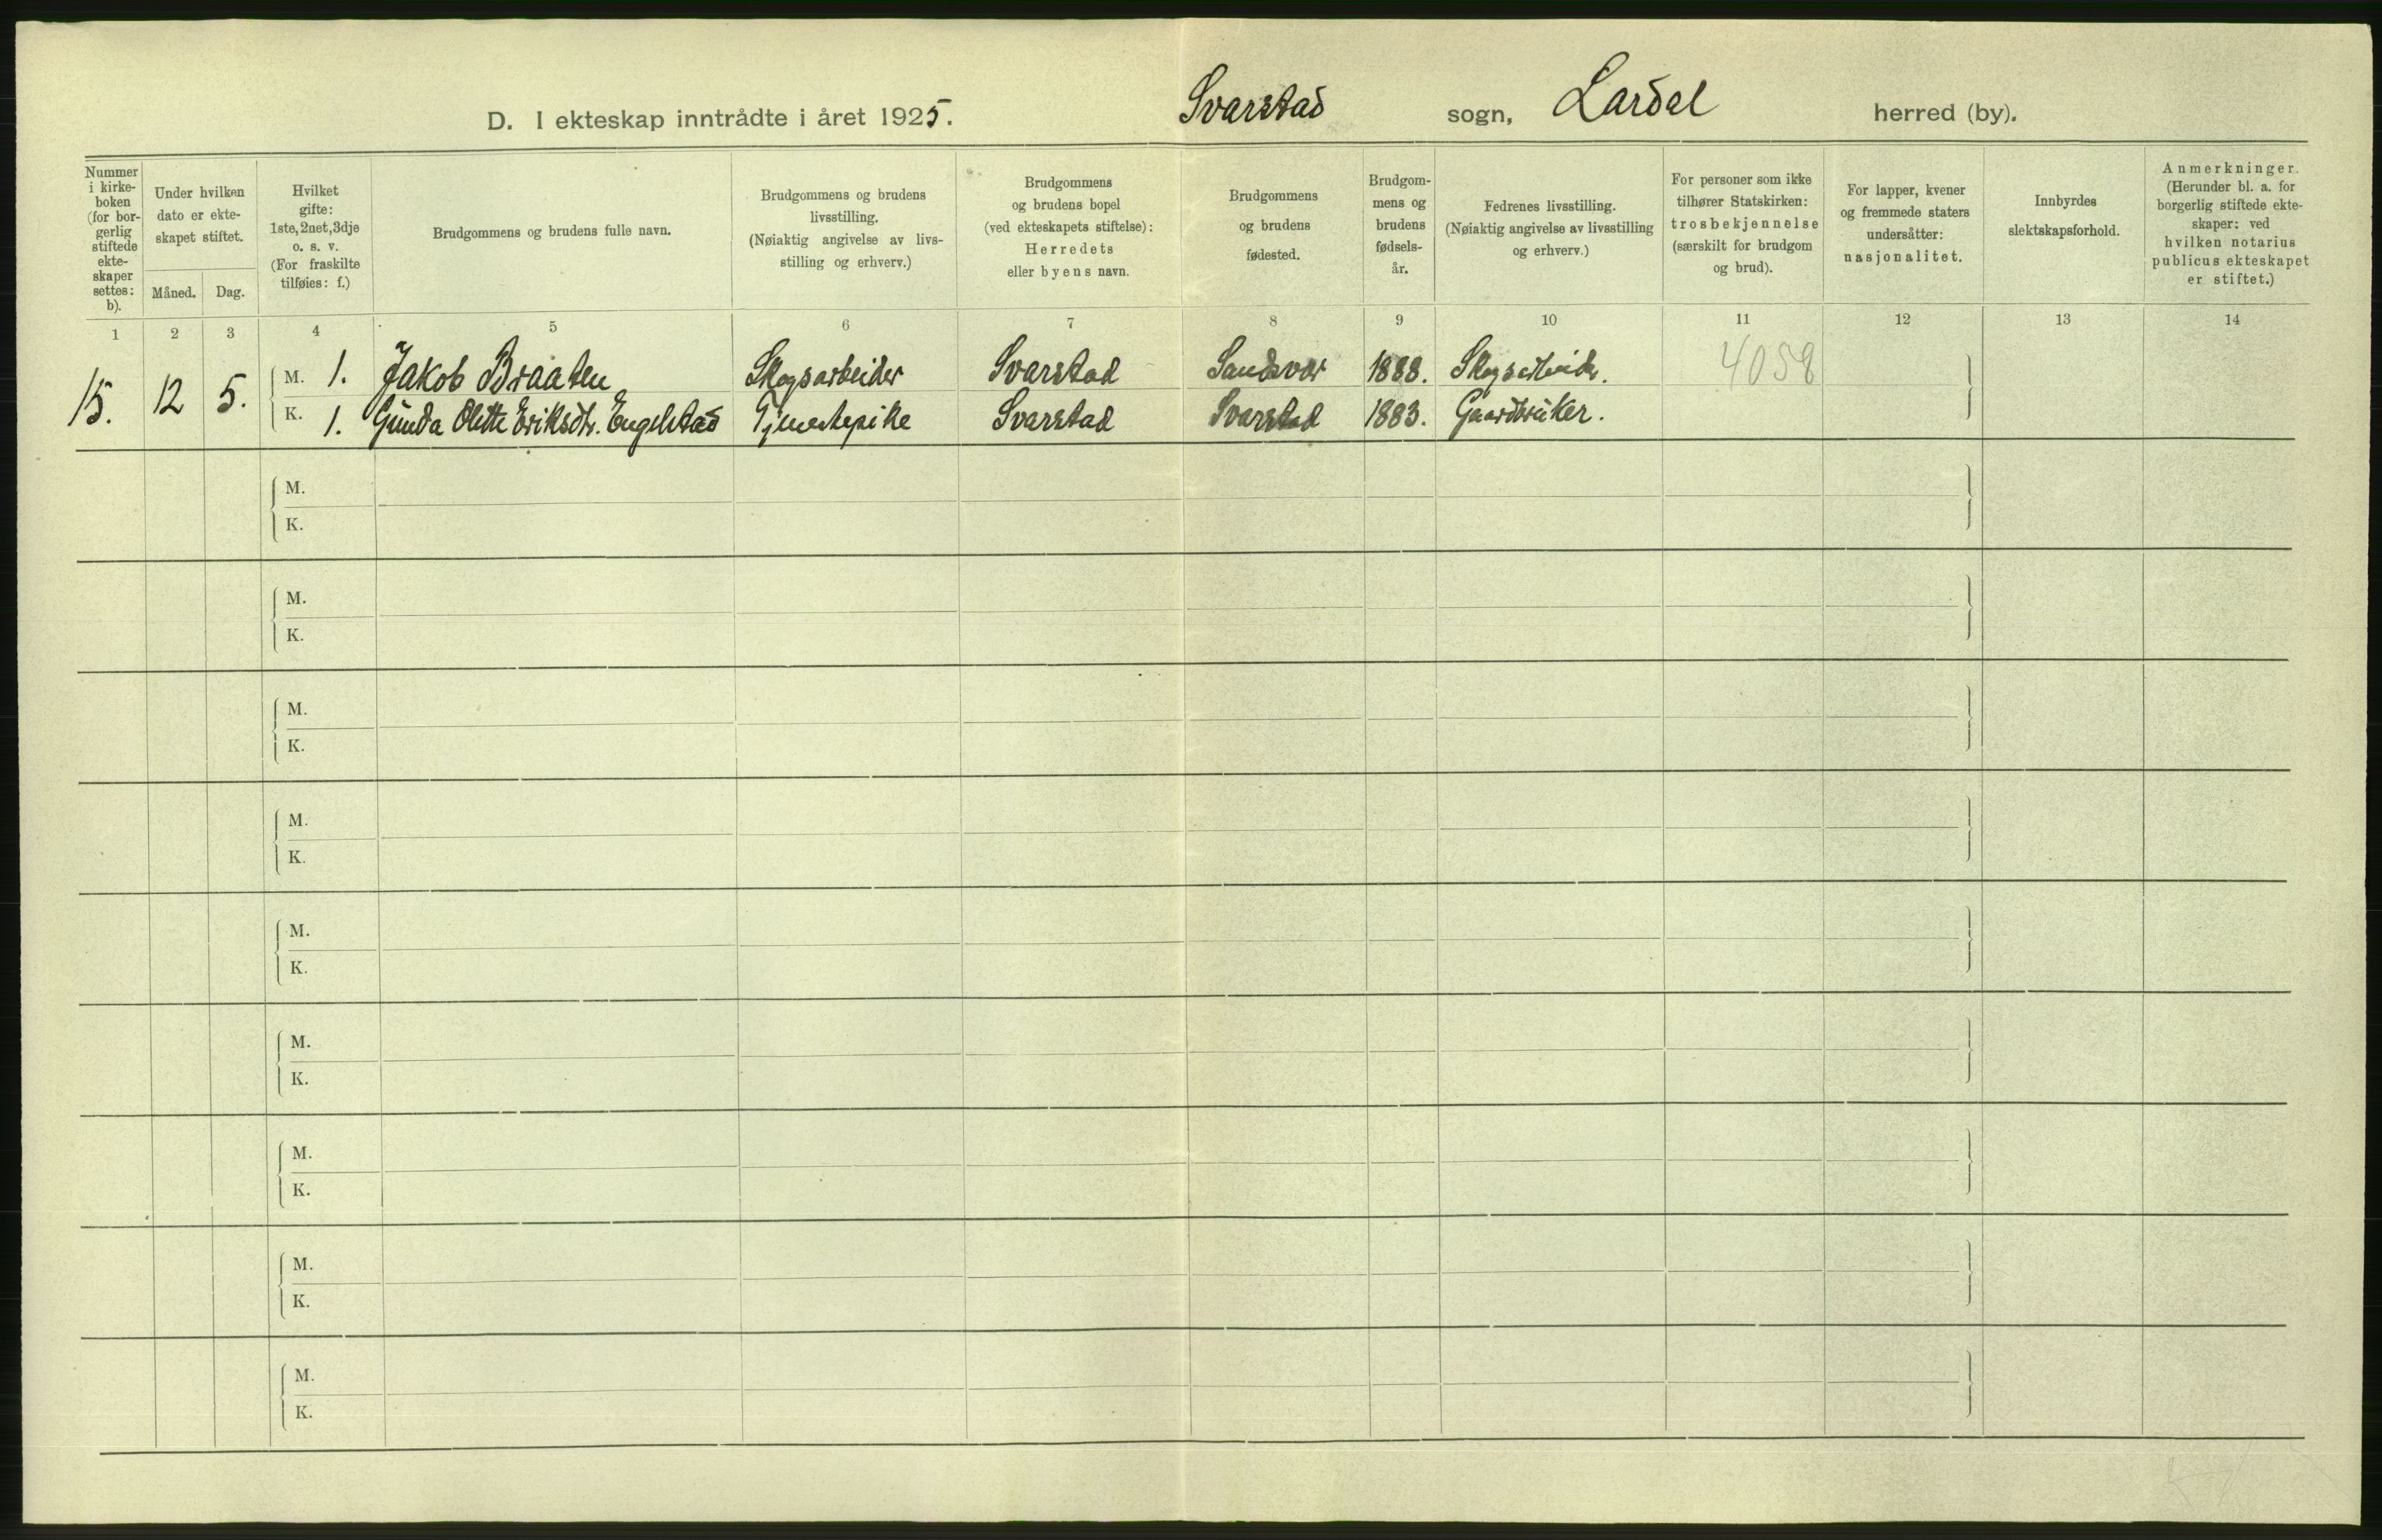 D. I ekteskap inntrådte i året 1925. Svarstad sogn, Lardal herred (by).
Nummer
i kirke-
boken
(for bor-
gerlig
stiftede
ekte-
skaper
settes:
b).
Under hvilken
dato er ekte-
skapet stiftet.
Måned. Dag.
Hvilket
gifte:
1ste, 2net, 3dje
o. s. v.
(For fraskilte
tilføies: f.)
Brudgommens og brudens fulle navn.
Brudgommens og brudens
livsstilling.
(Nøiaktig angivelse av livs-
stilling og erhverv.)
Brudgommens
og brudens bopel
(ved ekteskapets stiftelse):
Herredets
eller byens navn.
Brudgommens
og brudens
fødested.
Brudgom-
mens og
brudens
fødsels-
år.
Fedrenes livsstilling.
(Nøiaktig angivelse av livsstilling
og erhverv.)
For personer som ikke
tilhører Statskirken:
trosbekjennelse
(særskilt for brudgom
og brud).
For lapper, kvener
og fremmede staters
undersåtter:
nasjonalitet.
Innbyrdes
slektskapsforhold.
Anmerkninger.
(Herunder bl. a. for
borgerlig stiftede ekte-
skaper: ved
hvilken notarius
publicus ekteskapet
er stiftet.)
1 2 3 4 5 6 7 8 9 10 11 12 13 14
15. 12 5. M. 1. Jakob Braaten Skogsarbeider Svarstad Sandsvær 1888. Skogsarbeider. 4058
K. 1. Gunda Olette Eriksdtr. Engelstad Tjenestepike Svarstad Svarstad 1883. Gaardbruker.
M.
K.
M.
K.
M.
K.
M.
K.
M.
K.
M.
K.
M.
K.
M.
K.
M.
K.